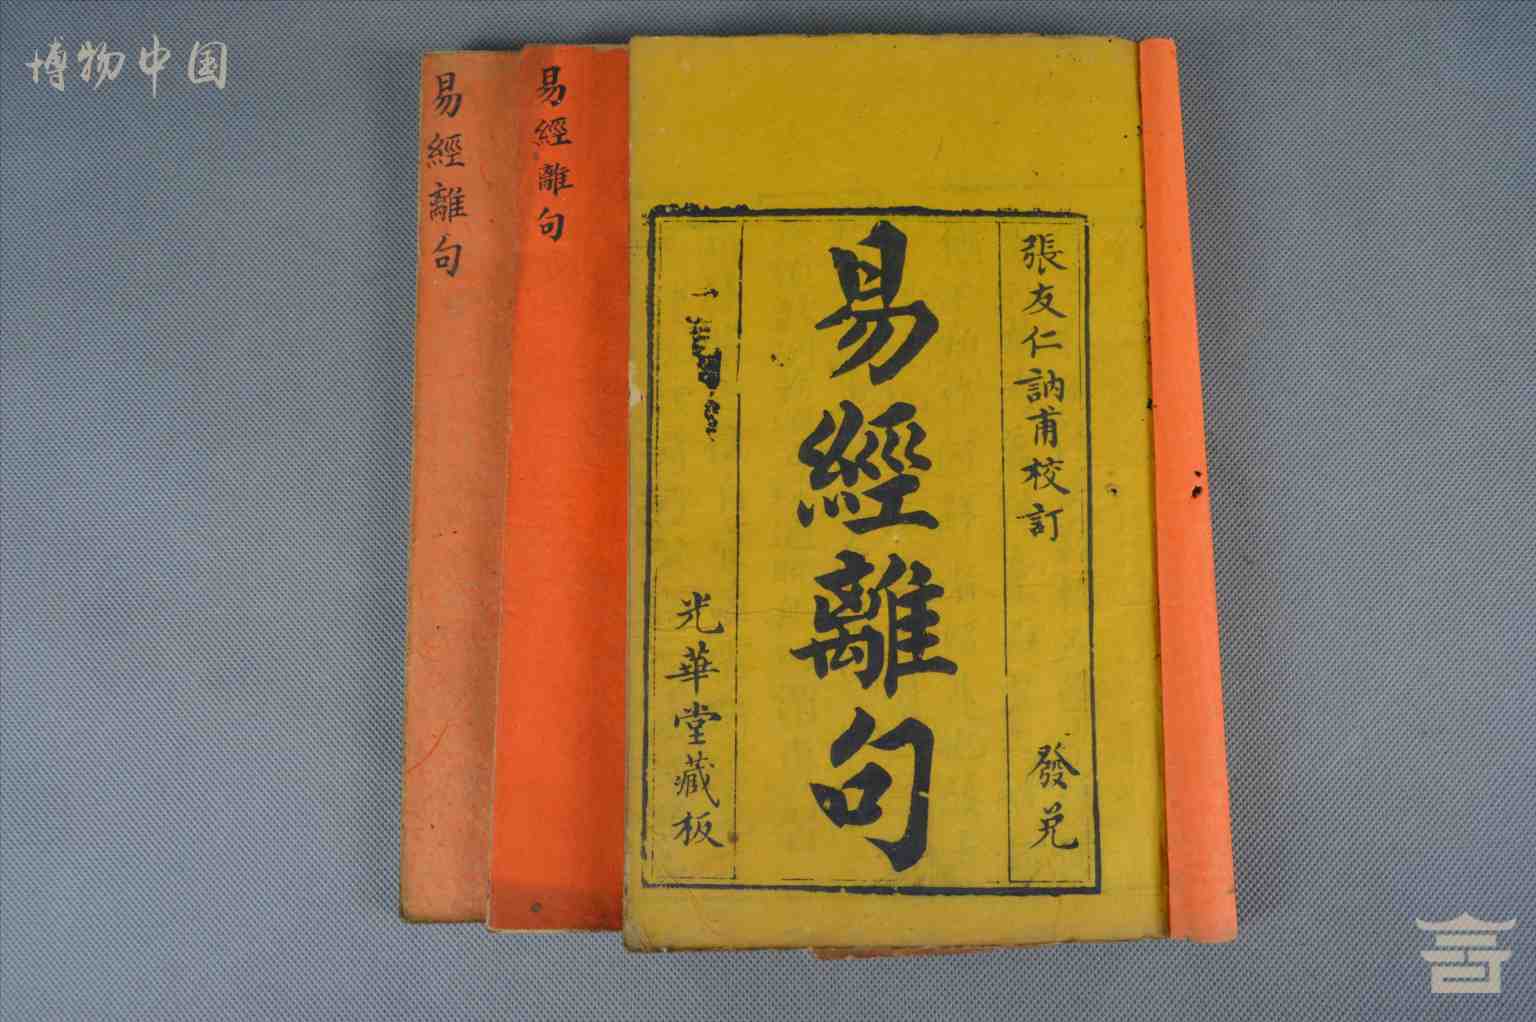 博物中国
易經離句
易經離句
張友仁訥甫校訂
發兌
易經離句
光華堂藏板